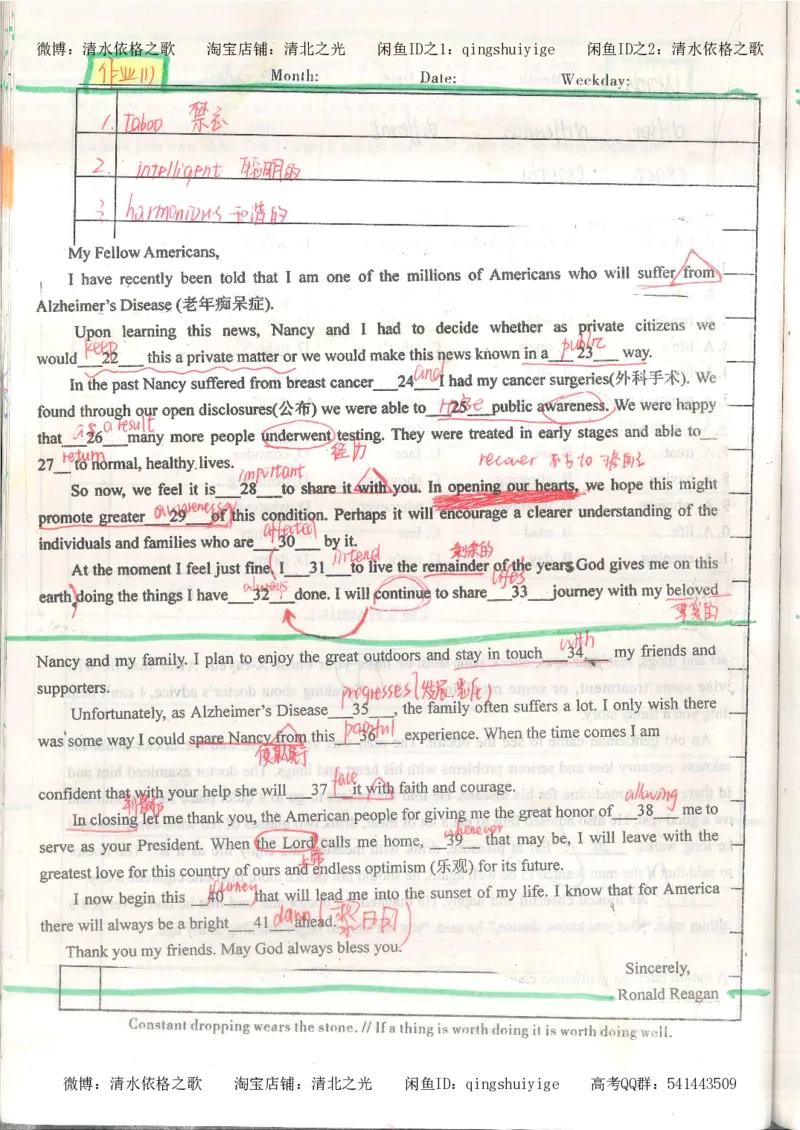 微博：清水依格之歌 淘宝店铺：清北之光 闲鱼ID之1：qingshuiyige 闲鱼ID之2：清水依格之歌
作业(1) Month: Date: Weekday:
1. Taboo 禁忌
2. intelligent 聪明的
3. harmonious 和谐的
My Fellow Americans,
I have recently been told that I am one of the millions of Americans who will suffer from
Alzheimer's Disease (老年痴呆症).
Upon learning this news, Nancy and I had to decide whether as private citizens we
keep public
would___22___ this a private matter or we would make this news known in a___23___ way.
and
In the past Nancy suffered from breast cancer___24___I had my cancer surgeries(外科手术). We
raise
found through our open disclosures(公布) we were able to___25___public awareness. We were happy
as a result
that___26___many more people underwent testing. They were treated in early stages and able to__
return 经历 recover 不与to搭配
27__to normal, healthy lives.
important
So now, we feel it is___28___to share it with you. In opening our hearts, we hope this might
awareness
promote greater___29___of this condition. Perhaps it will encourage a clearer understanding of the
affected
individuals and families who are___30___ by it.
intend 剩余的
At the moment I feel just fine. I___31___to live the remainder of the years God gives me on this
always life's
earth doing the things I have___32___done. I will continue to share___33___journey with my beloved
with
Nancy and my family. I plan to enjoy the great outdoors and stay in touch___34___ my friends and
supporters.
progresses (发展，恶化)
Unfortunately, as Alzheimer's Disease___35___, the family often suffers a lot. I only wish there
painful
was some way I could spare Nancy from this___36___ experience. When the time comes I am
使免除
face
confident that with your help she will___37___it with faith and courage.
allowing
In closing let me thank you, the American people for giving me the great honor of___38___me to
whenever
serve as your President. When the Lord calls me home,___39___that may be, I will leave with the
上帝
greatest love for this country of ours and endless optimism (乐观) for its future.
journey
I now begin this___40___that will lead me into the sunset of my life. I know that for America
dawn (黎明)
there will always be a bright___41___ahead.
Thank you my friends. May God always bless you.
Sincerely,
Ronald Reagan
Constant dropping wears the stone. // If a thing is worth doing it is worth doing well.
微博：清水依格之歌 淘宝店铺：清北之光 闲鱼ID：qingshuiyige 高考QQ群：541443509